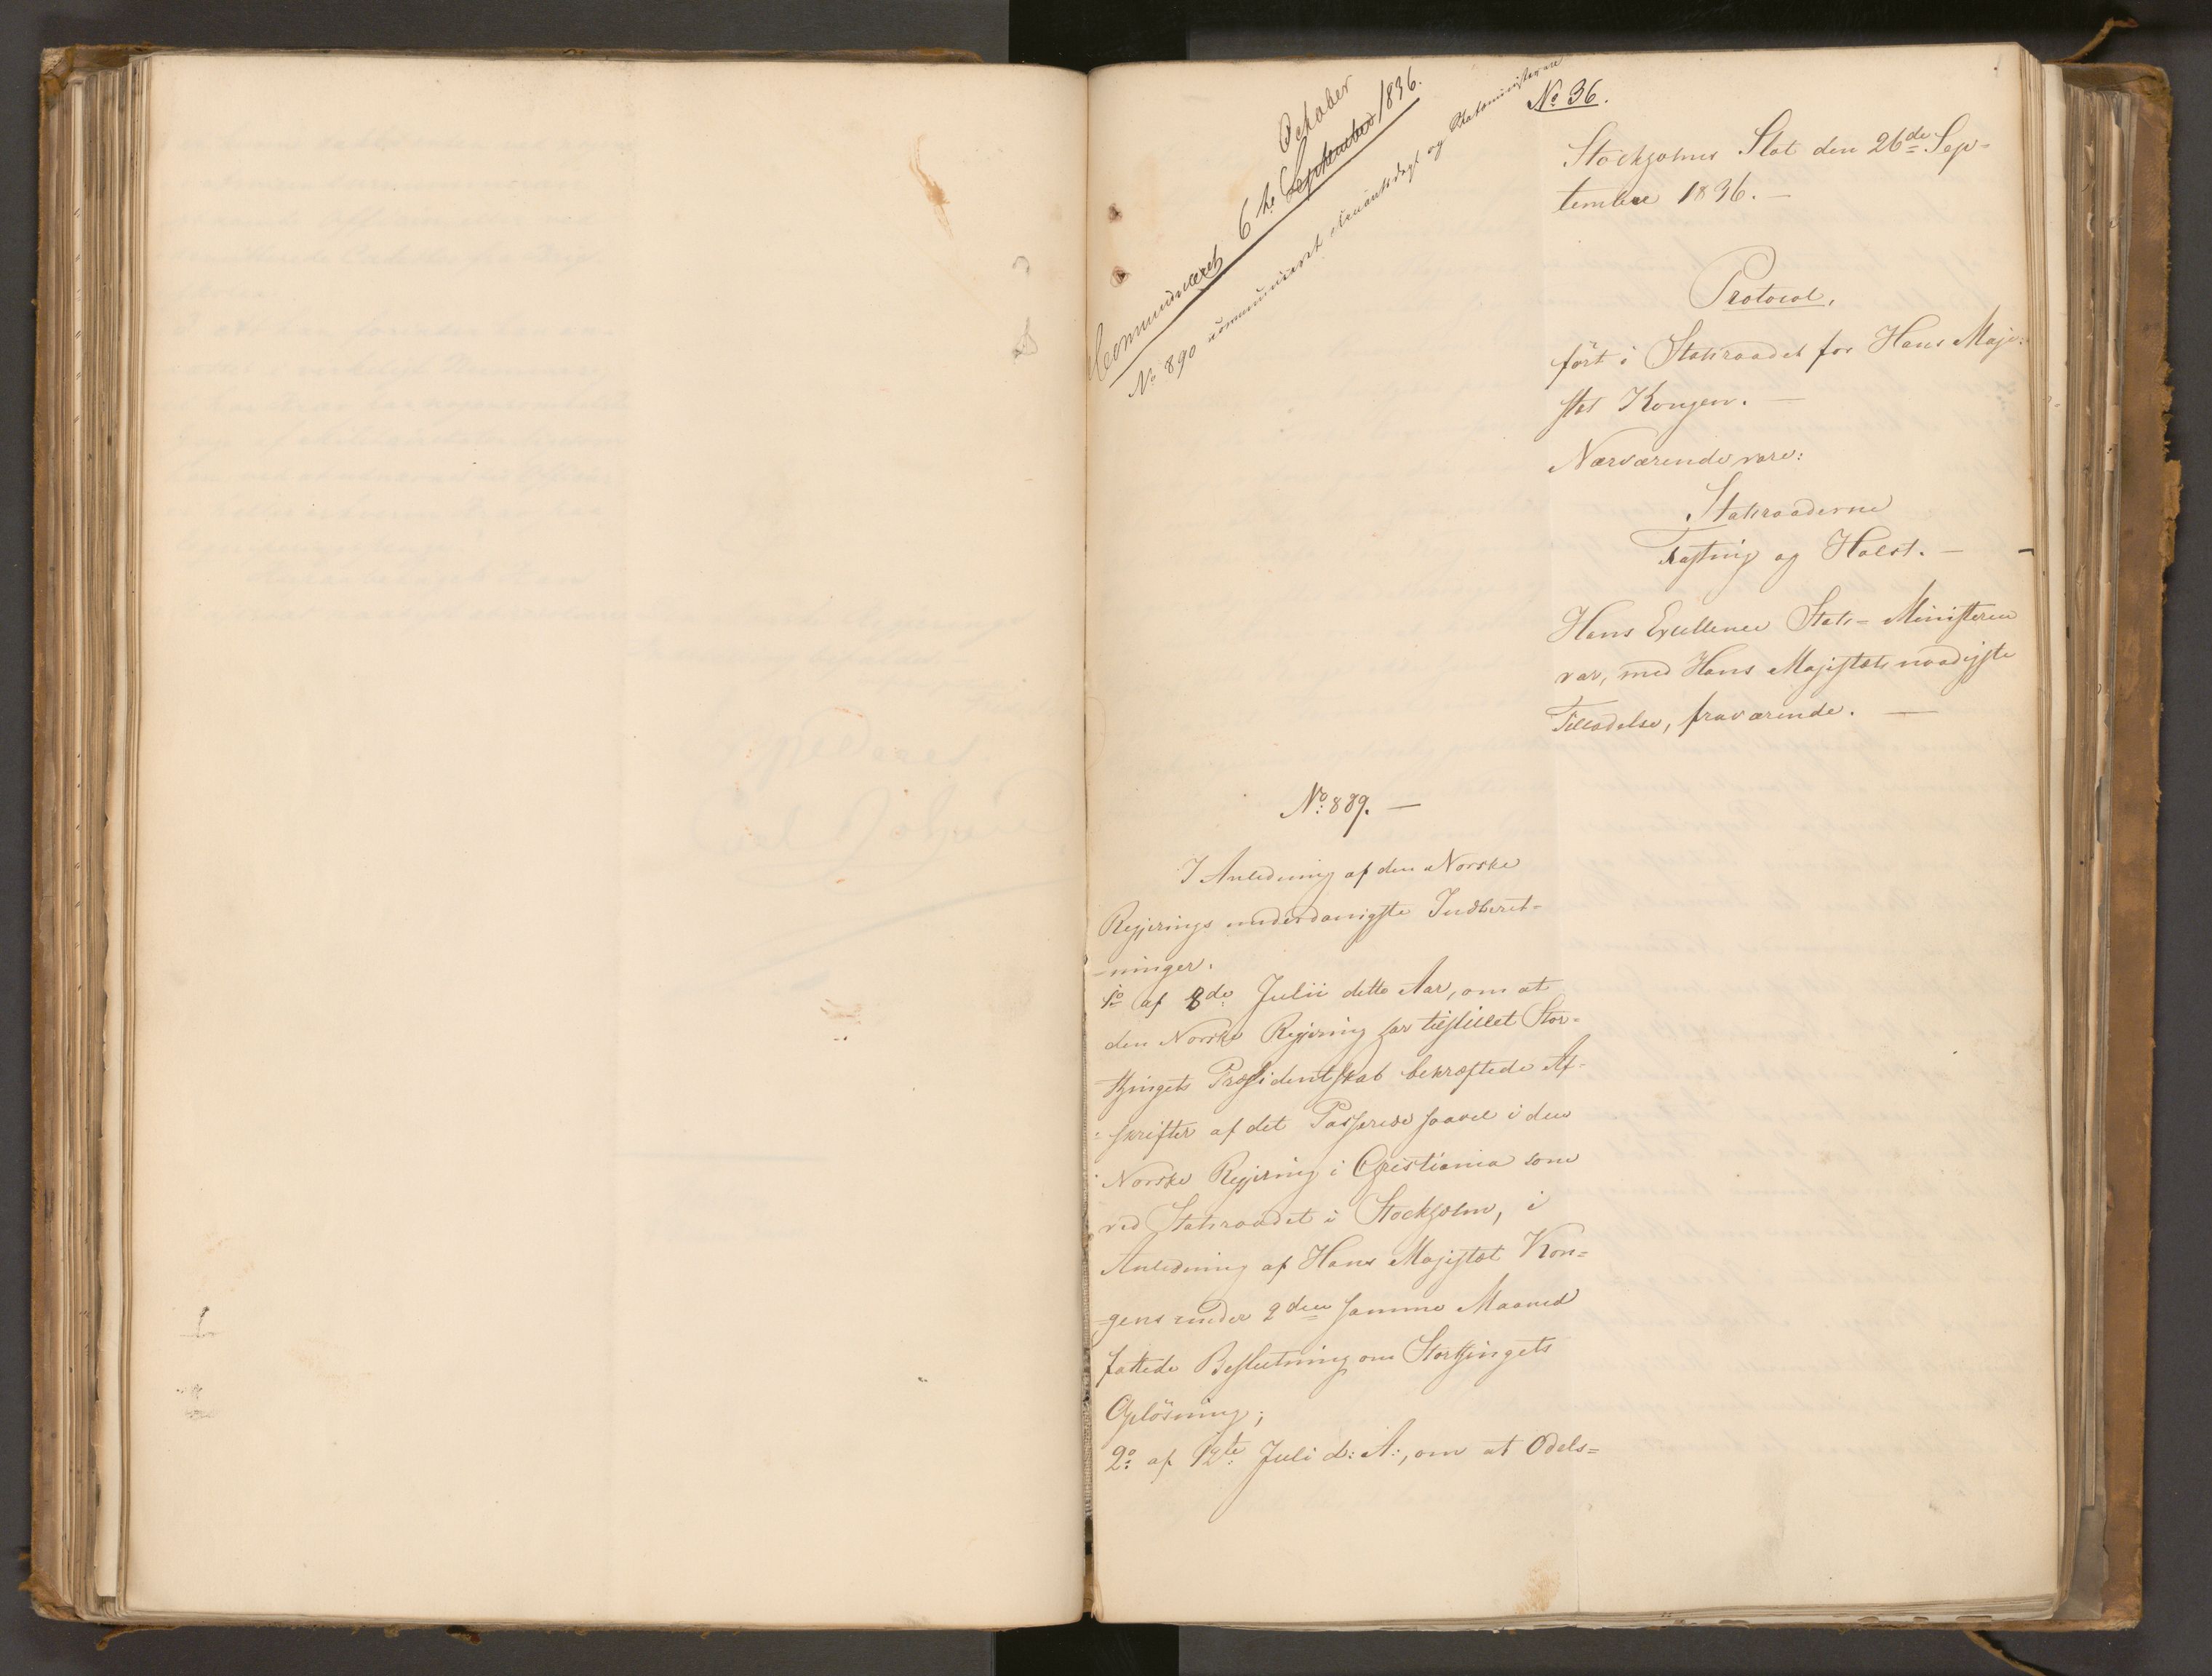 October
Communiceret 6te September 1836.
No 890 communiceret og Statsministeren
No 36.
Stockholms Slot den 26de Sep-
tember 1836. —
Protocol,
ført i Statsraadet for Hans Maje-
stæt Kongen. —
Nærværende vare:
Statsraaderne
Fasting og Holst. —
Hans Excellence Stats-Ministeren
var, med Hans Majestæts naadigste
Tilladelse, fraværende. —
No: 889. —
I Anledning af den Norske
Regjerings underdanigste Indberet-
-ninger.
1o af 8de Julii dette Aar, om at
den Norske Regjering har tilstillet Stor-
thingets Præsidentskab bekræftede Af-
skrifter af det Passerede saavel i den
Norske Regjering i Christiania som
ved Statsraadet i Stockholm, i
Anledning af Hans Majestæt Kon-
-gens under 2den samme Maaned
fattede Beslutning om Storthingets
Opløsning;
2o af 12te Juli d: A:, om at Odels-